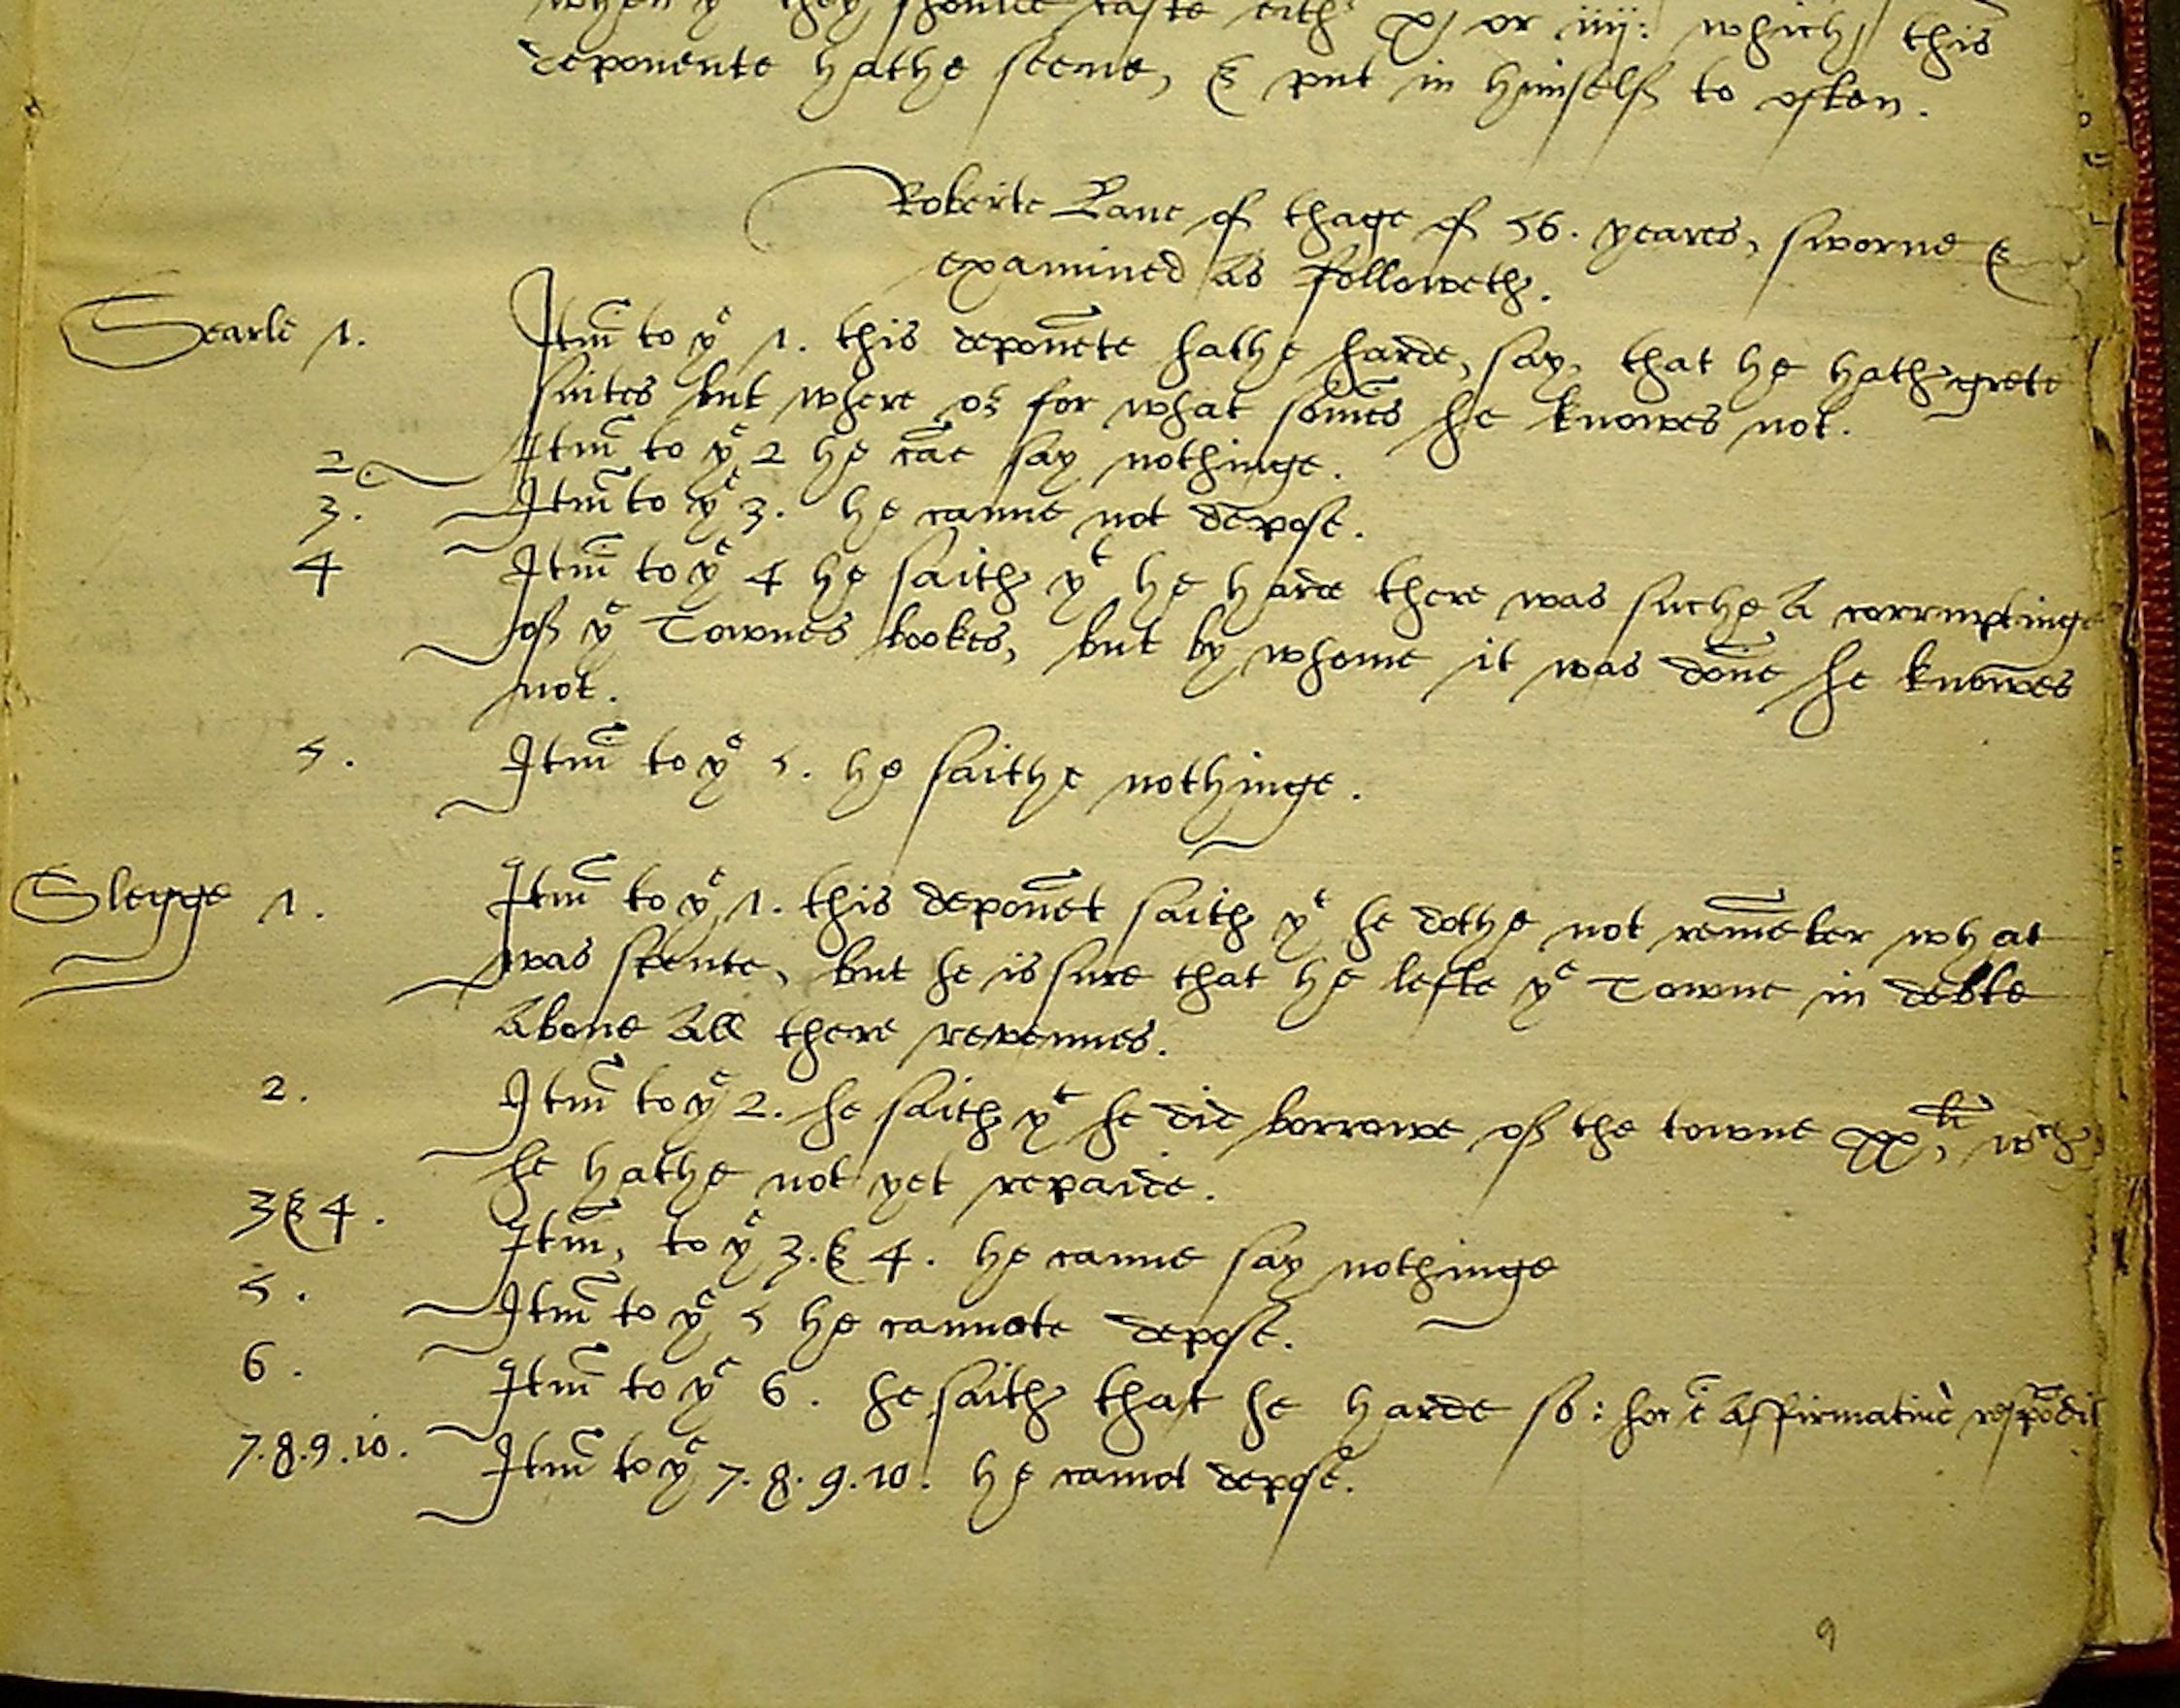 when yt they shoulde caste eithr xj or iiij: which this
deponente hathe seene, & put in himself to often.
Roberte Lane of thage of 56. yeares, sworne &
examined as followeth.
Searle 1. Itm̄ to ye 1. this deponēte hathe harde, say, that he hath grete
suites but where or for what som̄es he knowes not.
2 Itm̄ to ye 2 he cāe say nothinge.
3. Itm̄ to ye 3. he canne not depose.
4 Itm̄ to ye 4 he saith yt he harde there was suche a corruptinge
of ye Townes bookes, but by whome it was donē he knowes
not.
5. Itm̄ to ye 5. he saithe nothinge.
Slegge 1. Itm̄ to ye 1. this deponēt saith yt he dothe not remēber what
was spente, but he is sure that he lefte ye Towne in debte
above all there revenues.
2. Itm̄ to ye 2. he saith yt he did borrowe of the towne xxli, wch
he hathe not yet repaide.
3 & 4. Itm̄, to ye 3. & 4. he canne say nothinge
5. Itm̄ to ye 5 he cannote depose.
6. Itm̄ to ye 6. he saith that he harde so: hoc ē affirmativè respōdit
7.8.9.10. Itm̄ to ye 7.8.9.10. he cannot depose.
9